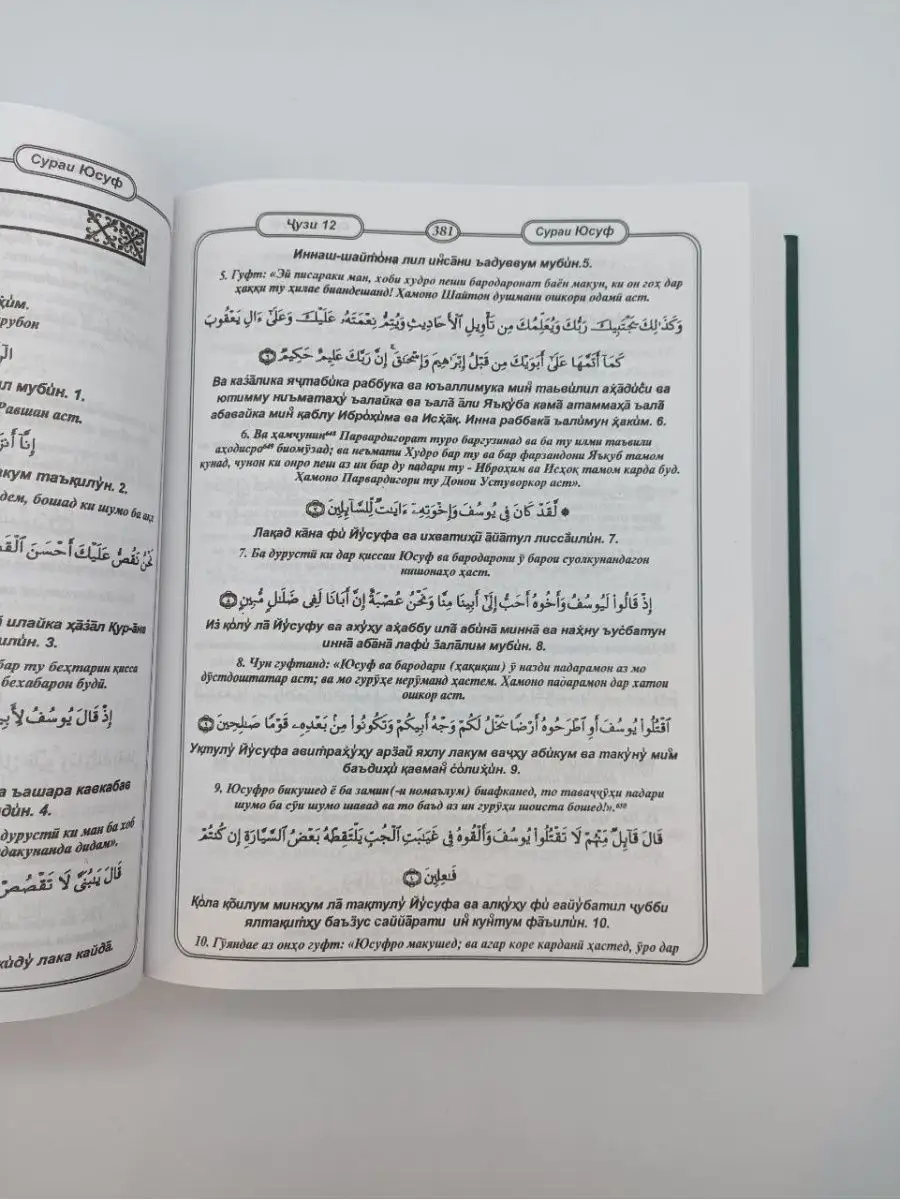 Сураи Юсуф
ҳи́м.
рубон
ил мубӣн. 1.
Равшан аст.
إِنَّا
акум таъқилӯн. 2.
дем, бошад ки шумо ба ақ
نَحْنُ نَقُصُّ عَلَيْكَ أَحْسَنَ
илайка ҳāзāл Қур-āна
илӣн. 3.
бар ту беҳтарин қисса
бехабарон будӣ.
إِذْ قَالَ يُوسُفُ
а ъашара кавкабав
дӣн. 4.
дурустӣ ки ман ба хоб
дакунанда дидам».
قَالَ يَٰبُنَىَّ لَا تَقْصُصْ
лака кайдā.
Ҷузи 12
381
Сураи Юсуф
Иннаш-шайтóна лил инсāни ъадуввум мубӣн.5.
5. Гуфт: «Эй писараки ман, хоби худро пеши бародаронат баён макун, ки он гоҳ дар
ҳаққи ту ҳилае биандешанд! Ҳамоно Шайтон душмани ошкори одамӣ аст.
وَكَذَٰلِكَ يَجْتَبِيكَ رَبُّكَ وَيُعَلِّمُكَ مِن تَأْوِيلِ ٱلْأَحَادِيثِ وَيُتِمُّ نِعْمَتَهُۥ عَلَيْكَ وَعَلَىٰٓ ءَالِ يَعْقُوبَ
كَمَآ أَتَمَّهَا عَلَىٰٓ أَبَوَيْكَ مِن قَبْلُ إِبْرَٰهِيمَ وَإِسْحَٰقَ ۚ إِنَّ رَبَّكَ عَلِيمٌ حَكِيمٌ ٦
Ва казāлика яҷтабӣка раббука ва юъаллимука мин таъвӣлил аҳāдӣси ва
ютимму ниъматаҳӯ ъалайка ва ъалā āли Яъқӯба камā атаммаҳā ъалā
абавайка мин қаблу Иброҳӣма ва Исҳāқ. Инна раббакā ъалӣмун ҳакӣм. 6.
6. Ва ҳамчунин⁶⁴⁸ Парвардигорат туро баргузинад ва ба ту илми таъвили
аҳодисро⁶⁴⁹ биомӯзад; ва неъмати Худро бар ту ва бар фарзандони Яъқуб тамом
кунад, чунон ки онро пеш аз ин бар ду падари ту - Иброҳим ва Исҳоқ тамом карда буд.
Ҳамоно Парвардигори ту Донои Устуворкор аст».
۞ لَّقَدْ كَانَ فِى يُوسُفَ وَإِخْوَتِهِۦٓ ءَايَٰتٌ لِّلسَّآئِلِينَ ٧
Лақад кāна фӣ Йӯсуфа ва ихватиҳӣ āйāтул лиссāилӣн. 7.
7. Ба дурустӣ ки дар қиссаи Юсуф ва бародарони ӯ барои суолкунандагон
нишонаҳо ҳаст.
إِذْ قَالُوا۟ لَيُوسُفُ وَأَخُوهُ أَحَبُّ إِلَىٰٓ أَبِينَا مِنَّا وَنَحْنُ عُصْبَةٌ إِنَّ أَبَانَا لَفِى ضَلَٰلٍ مُّبِينٍ ٨
Из қōлӯ лā Йӯсуфу ва ахӯҳу аҳаббу илā абӣнā миннā ва наҳну ъусбатун
иннā абāнā лафӣ залāлим мубӣн. 8.
8. Чун гуфтанд: «Юсуф ва бародари (ҳақиқии) ӯ назди падарамон аз мо
дӯстдоштатар аст; ва мо гурӯҳе нерӯманд ҳастем. Ҳамоно падарамон дар хатои
ошкор аст.
ٱقْتُلُوا۟ يُوسُفَ أَوِ ٱطْرَحُوهُ أَرْضًا يَخْلُ لَكُمْ وَجْهُ أَبِيكُمْ وَتَكُونُوا۟ مِنۢ بَعْدِهِۦ قَوْمًا صَٰلِحِينَ ٩
Уқтулӯ Йӯсуфа авитраҳӯҳу арзай яхлу лакум ваҷҳу абӣкум ва такӯнӯ мим
баъдиҳӣ қавман сōлиҳӣн. 9.
9, Юсуфро бикушед ё ба замин(-и номаълум) биафканед, то таваҷҷӯҳи падари
шумо ба сӯи шумо шавад ва то баъд аз ин гурӯҳи шоиста бошед!».⁶⁵⁰
قَالَ قَآئِلٌ مِّنْهُمْ لَا تَقْتُلُوا۟ يُوسُفَ وَأَلْقُوهُ فِى غَيَٰبَتِ ٱلْجُبِّ يَلْتَقِطْهُ بَعْضُ ٱلسَّيَّارَةِ إِن كُنتُمْ
فَٰعِلِينَ ١٠
Қōла қōилум минҳум лā тақтулӯ Йӯсуфа ва алқӯҳу фӣ ғайӯбатил ҷубби
ялтақитҳу баъзус саййāрати ин кунтум фāъилӣн. 10.
10. Гӯяндае аз онҳо гуфт: «Юсуфро макушед; ва агар коре карданӣ ҳастед, ӯро дар